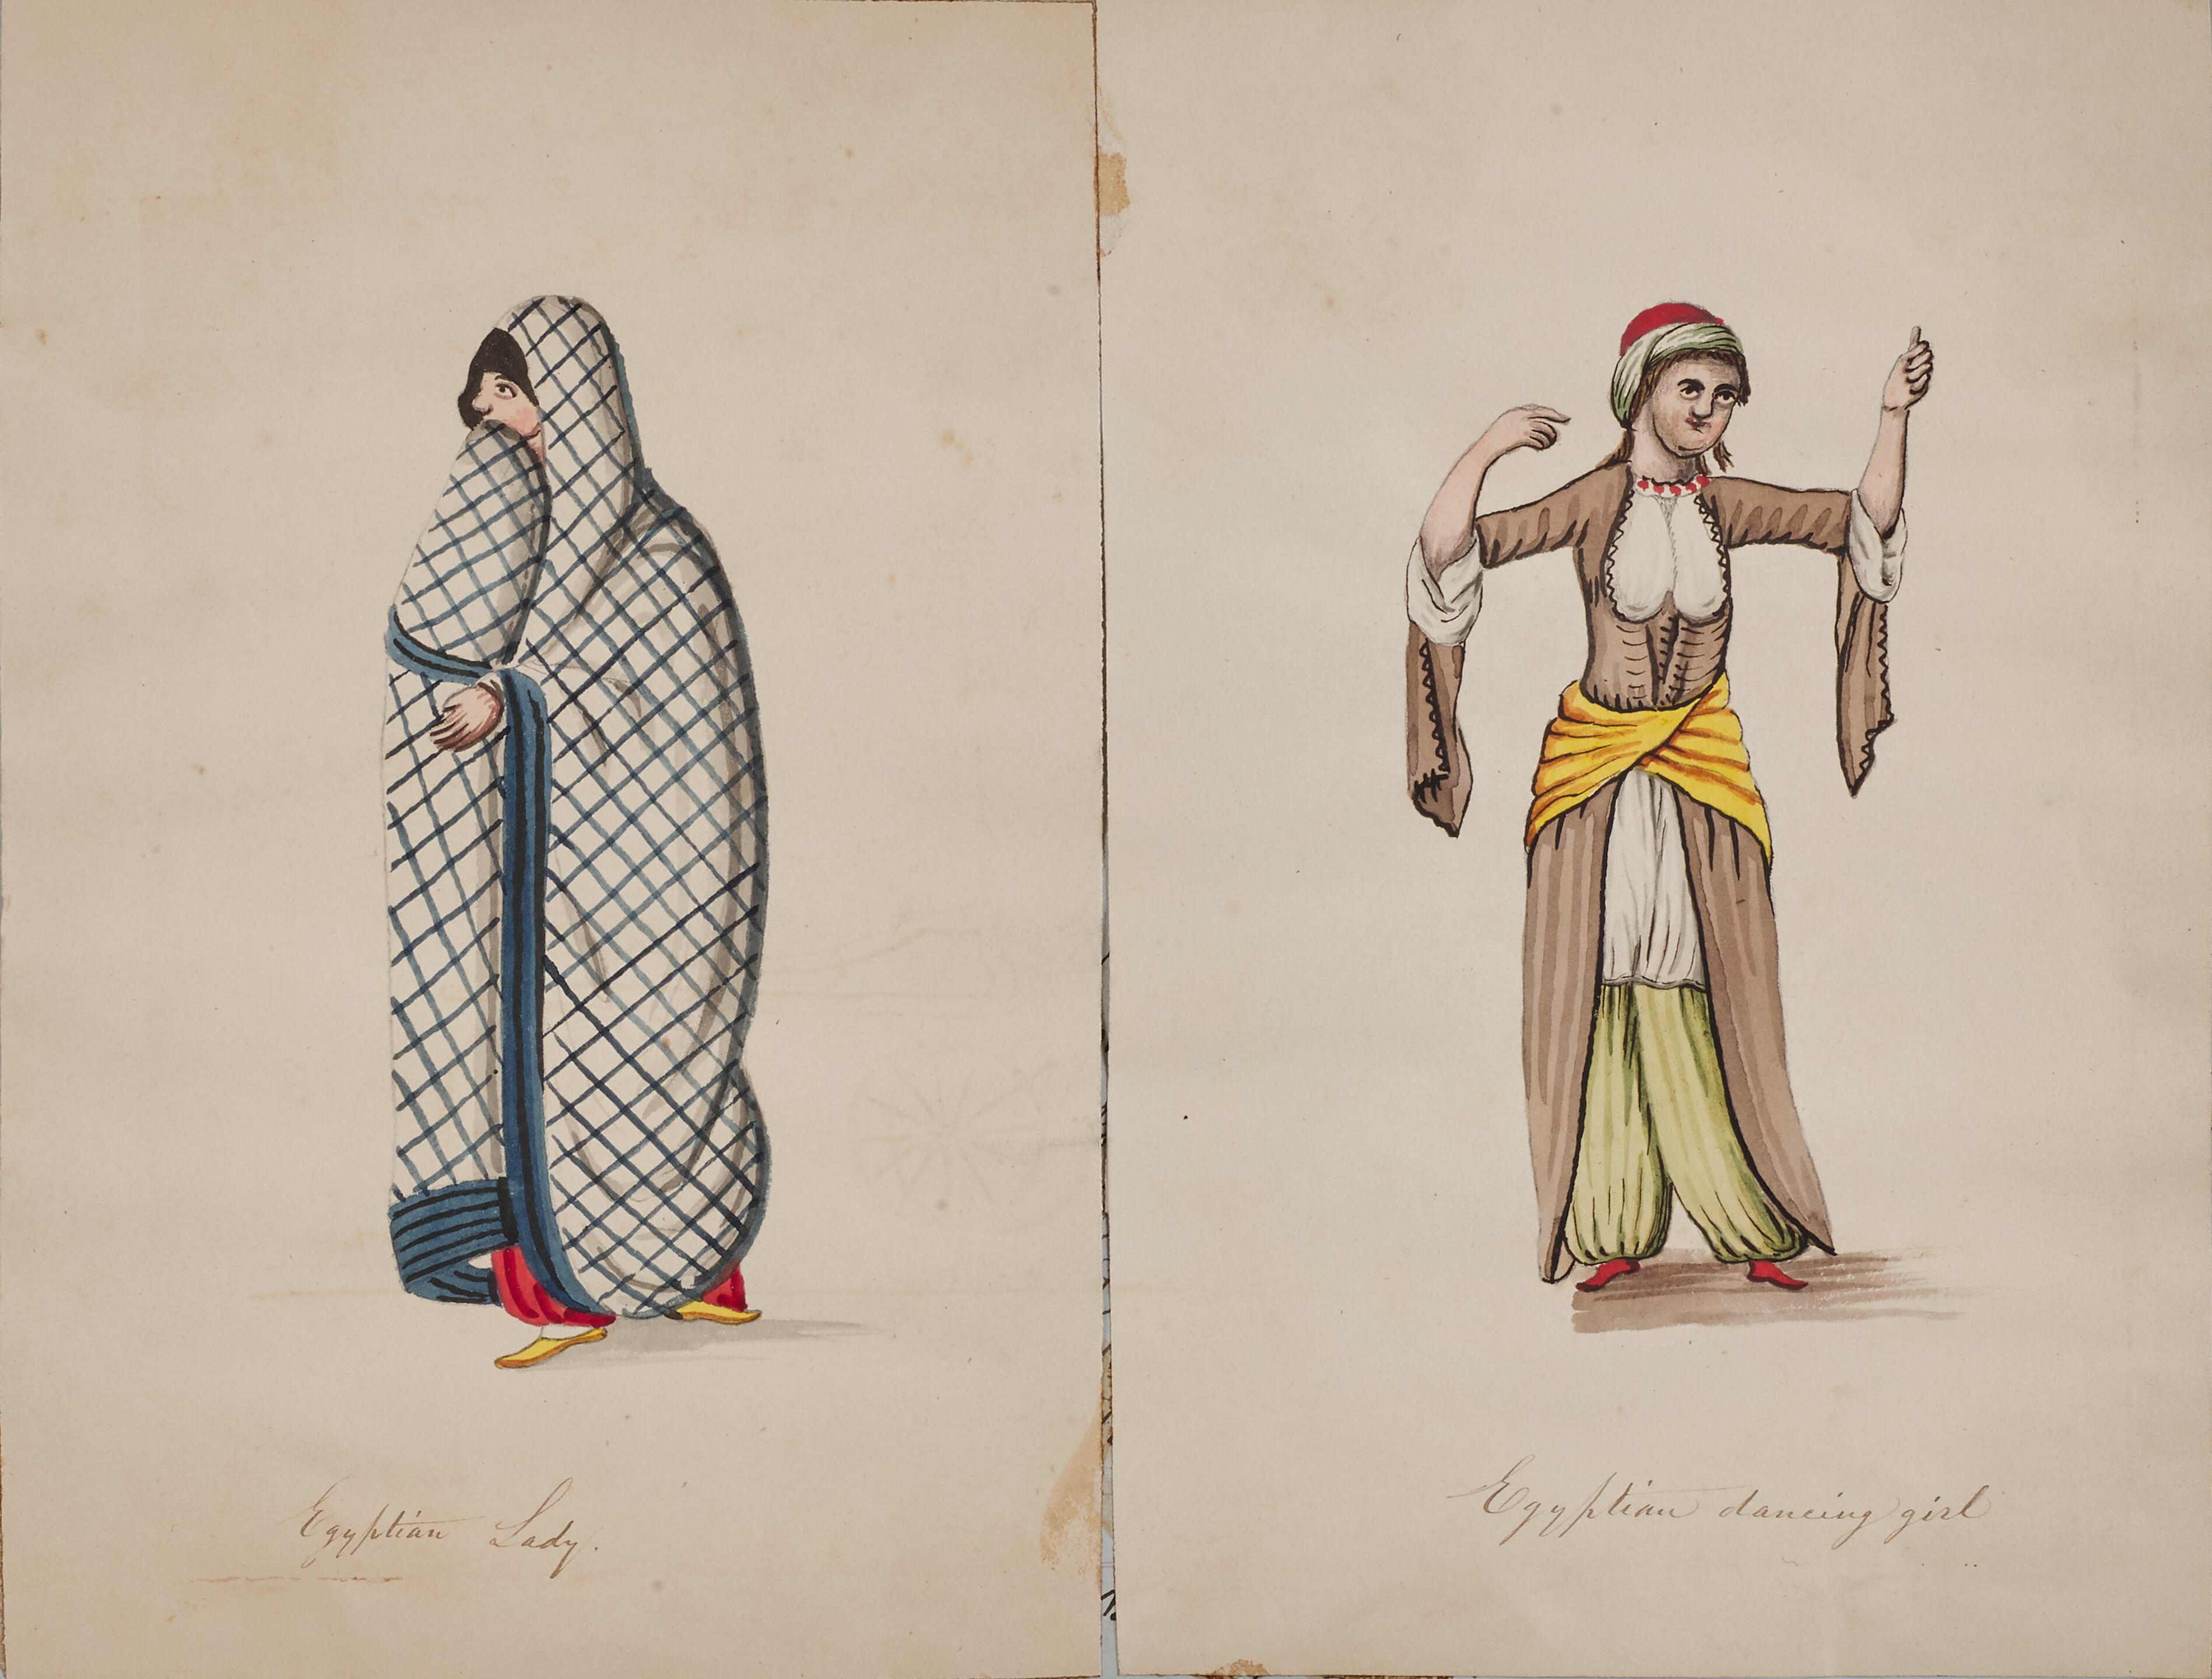 Egyptian Lady.
Egyptian dancing girl